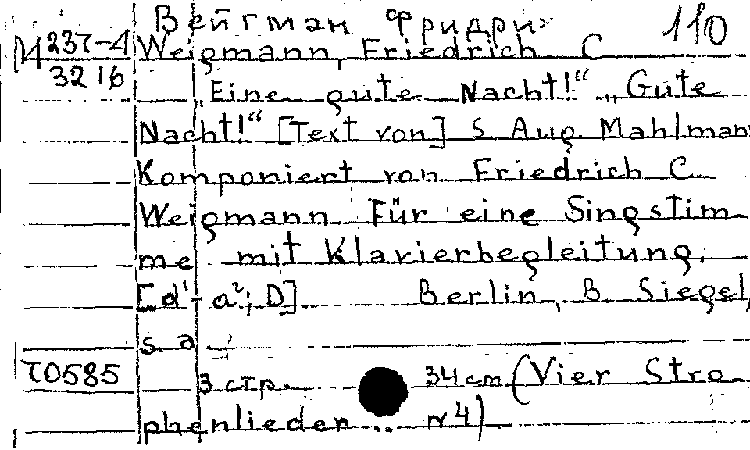 Вейгман Фридри 110
М 237-4 Weigmann, Friedrich C
3216 „Eine gute Nacht!“ „Gute
Nacht!“ [Text von] S. Aug. Mahlmann
Komponiert von Friedrich C.
Weigmann Für eine Singstim-
me mit Klavierbegleitung.
[d¹-a²; D]. Berlin, B. Siegel,
s a
T0585 3 стр. 34 cm (Vier Stro
phenlieder... N4)